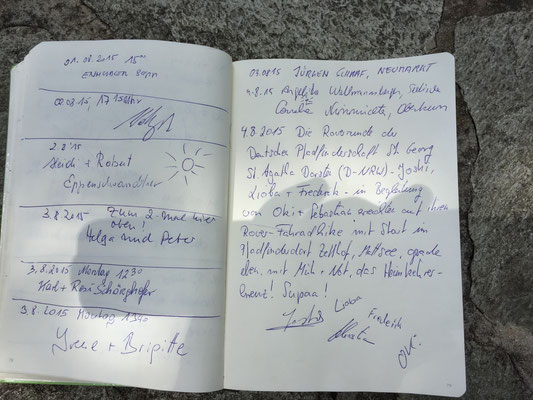 01.08.2015 15⁰⁰
ENHUBER Sepp
02.08.15, 17 15 Uhr
2.8.15
Heidi + Robert
Eppenschwandtner
3.8.2015 Zum 2. mal hier
oben!
Helga und Peter
3.8.2015 Montag 12³⁰
Karl + Rosi Schörghofer
3.8.2015 Montag 13⁴⁰
Irene + Brigitte
03.08.15 JÜRGEN SCHARF, NEUMARKT
4.8.15 Angelika Wallmannsberger,
Oberteum
4.8.2015 Die Roverrunde der
Deutschen Pfadfinderschaft St. Georg
St. Agatha Dorsten (D-NRW) - Joshi,
Lioba + Frederik - in Begleitung
von Oki + Sebastian erreichte auf ihren
Rover-Fahrradhike mit Start im
Pfadfinderdorf Zellhof, Mattsee, gerade
eben, mit Müh + Not, das Heimkehrer-
kreuz! Supaa!
Lioba
Frederik
Oki